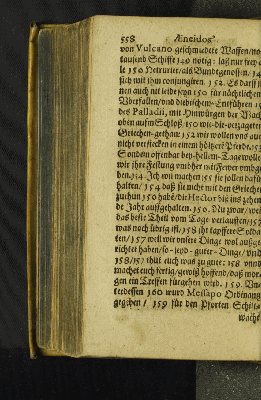 558 Æneidos
von Vulcano geschmiedete Waffen/no
tausend Schiffe 149 nötig: laß nur frey a
le 150 Hetrurier/als Bundtsgenossen. 14
sich mit ihm conjungiren. 152. Es darff i
nen auch nit leidt seyn 150 für nächtlichen
Uberfallen/und diebischen Entführen 15
des Palladii, mit Hinwürgen der Wach
oben auffm Schloß/150 wie die verzagten
Griechen gethan/152 wir wollen uns auch
nicht verstecken in einem höltzern Pferdt.153
Sondern offenbar bey hellem Tage wolle
wir ihre Festung rundher mit Fewer umbge
ben. 154. Ich wil machen/155 sie sollen dafür
halten/154 daß sie nicht mit den Griechen
zuthun 150 habē/die Hector biß ins zehen
de Jahr auffgehalten. 156. Nu zwar/weil
das beste Theil vom Tage verlauffen/157
was noch übrig ist/158 ihr tapffere Solda
ten/157 weil wir unsere Dinge wol außge
richtet haben/so seyd guter Dinge/und
158/157 thut euch was zu gute: 158 und
machet euch fertig/gewiß hoffend/daß mor
gen ein Treffen fürgehen wird. 159. Un
terdessen 160 wurd Messapo Ordinantz
gegeben/159 für den Pforten Schilt
wacht